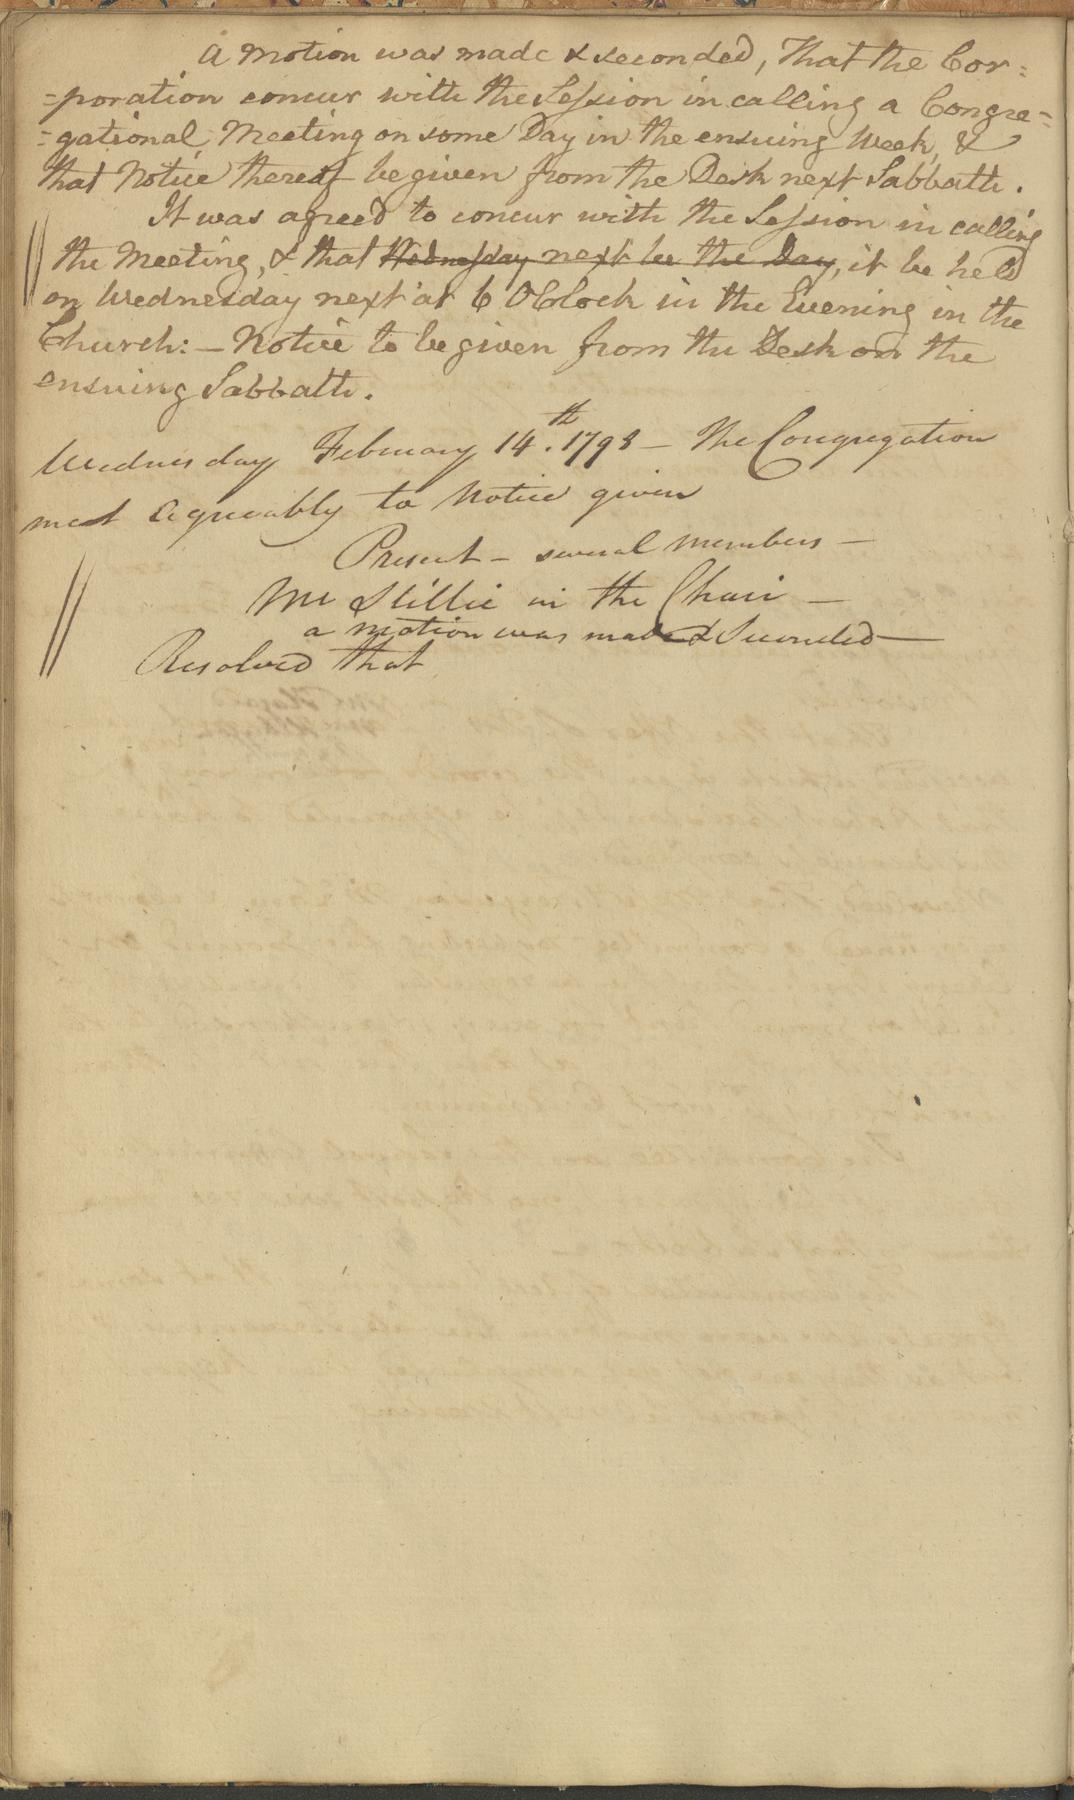 A Motion was made & seconded, That the Cor=
=poration concur with the Session in calling a Congre=
=gational Meeting on some Day in the ensuing Week, &
that Notice thereof be given from the Desk next Sabbath.
It was agreed to concur with the Session in calling
the Meeting, & that Wednesday next be the Day, it be held
on Wednesday next at 6 OClock in the Evening in the
Church: – Notice to be given from the Desk on the
ensuing Sabbath.
Wednesday February 14.th 1798 – The Congregation
met agreeably to Notice given
Present – several members –
Mr Stillie in the Chair –
a motion was made & Seconded –
Resolved that